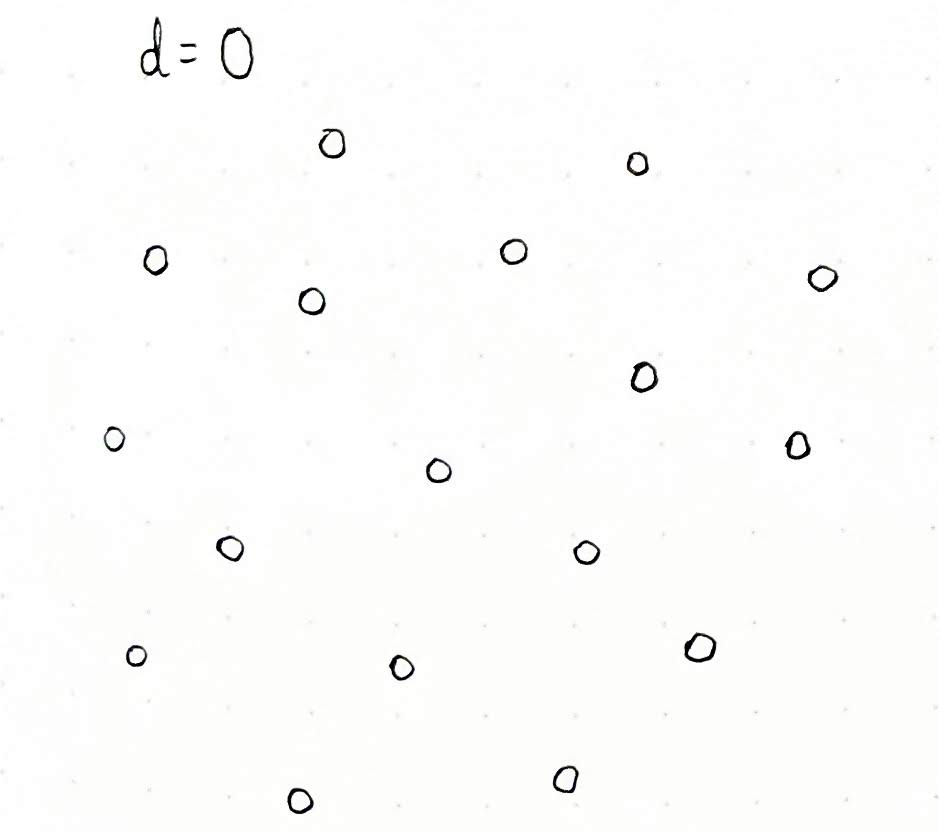 d = 0